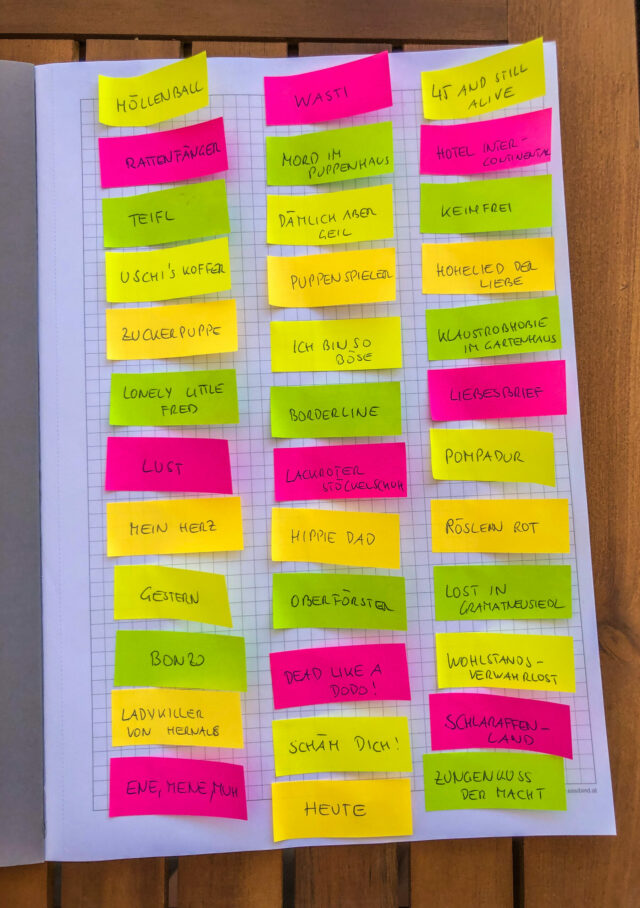 HÖLLENBALL
RATTENFÄNGER
TEIFL
USCHI'S KOFFER
ZUCKERPUPPE
LONELY LITTLE
FRED
LUST
MEIN HERZ
GESTERN
BONZO
LADYKILLER
VON HERNALS
ENE, MENE, MUH
WASTI
MORD IM
PUPPENHAUS
DÄMLICH ABER
GEIL
PUPPENSPIELER
ICH BIN SO
BÖSE
BORDERLINE
LACKROTER
STÖCKELSCHUH
HIPPIE DAD
OBERFÖRSTER
DEAD LIKE A
DODO!
SCHÄM DICH!
HEUTE
45 AND STILL
ALIVE
HOTEL INTER-
CONTINENTAL
KEIMFREI
HOHELIED DER
LIEBE
KLAUSTROPHOBIE
IM GARTENHAUS
LIEBESBRIEF
POMPADUR
RÖSLEIN ROT
LOST IN
GRAMATNEUSIEDL
WOHLSTANDS-
VERWAHRLOST
SCHLARAFFEN-
LAND
ZUNGENKUSS
DER MACHT